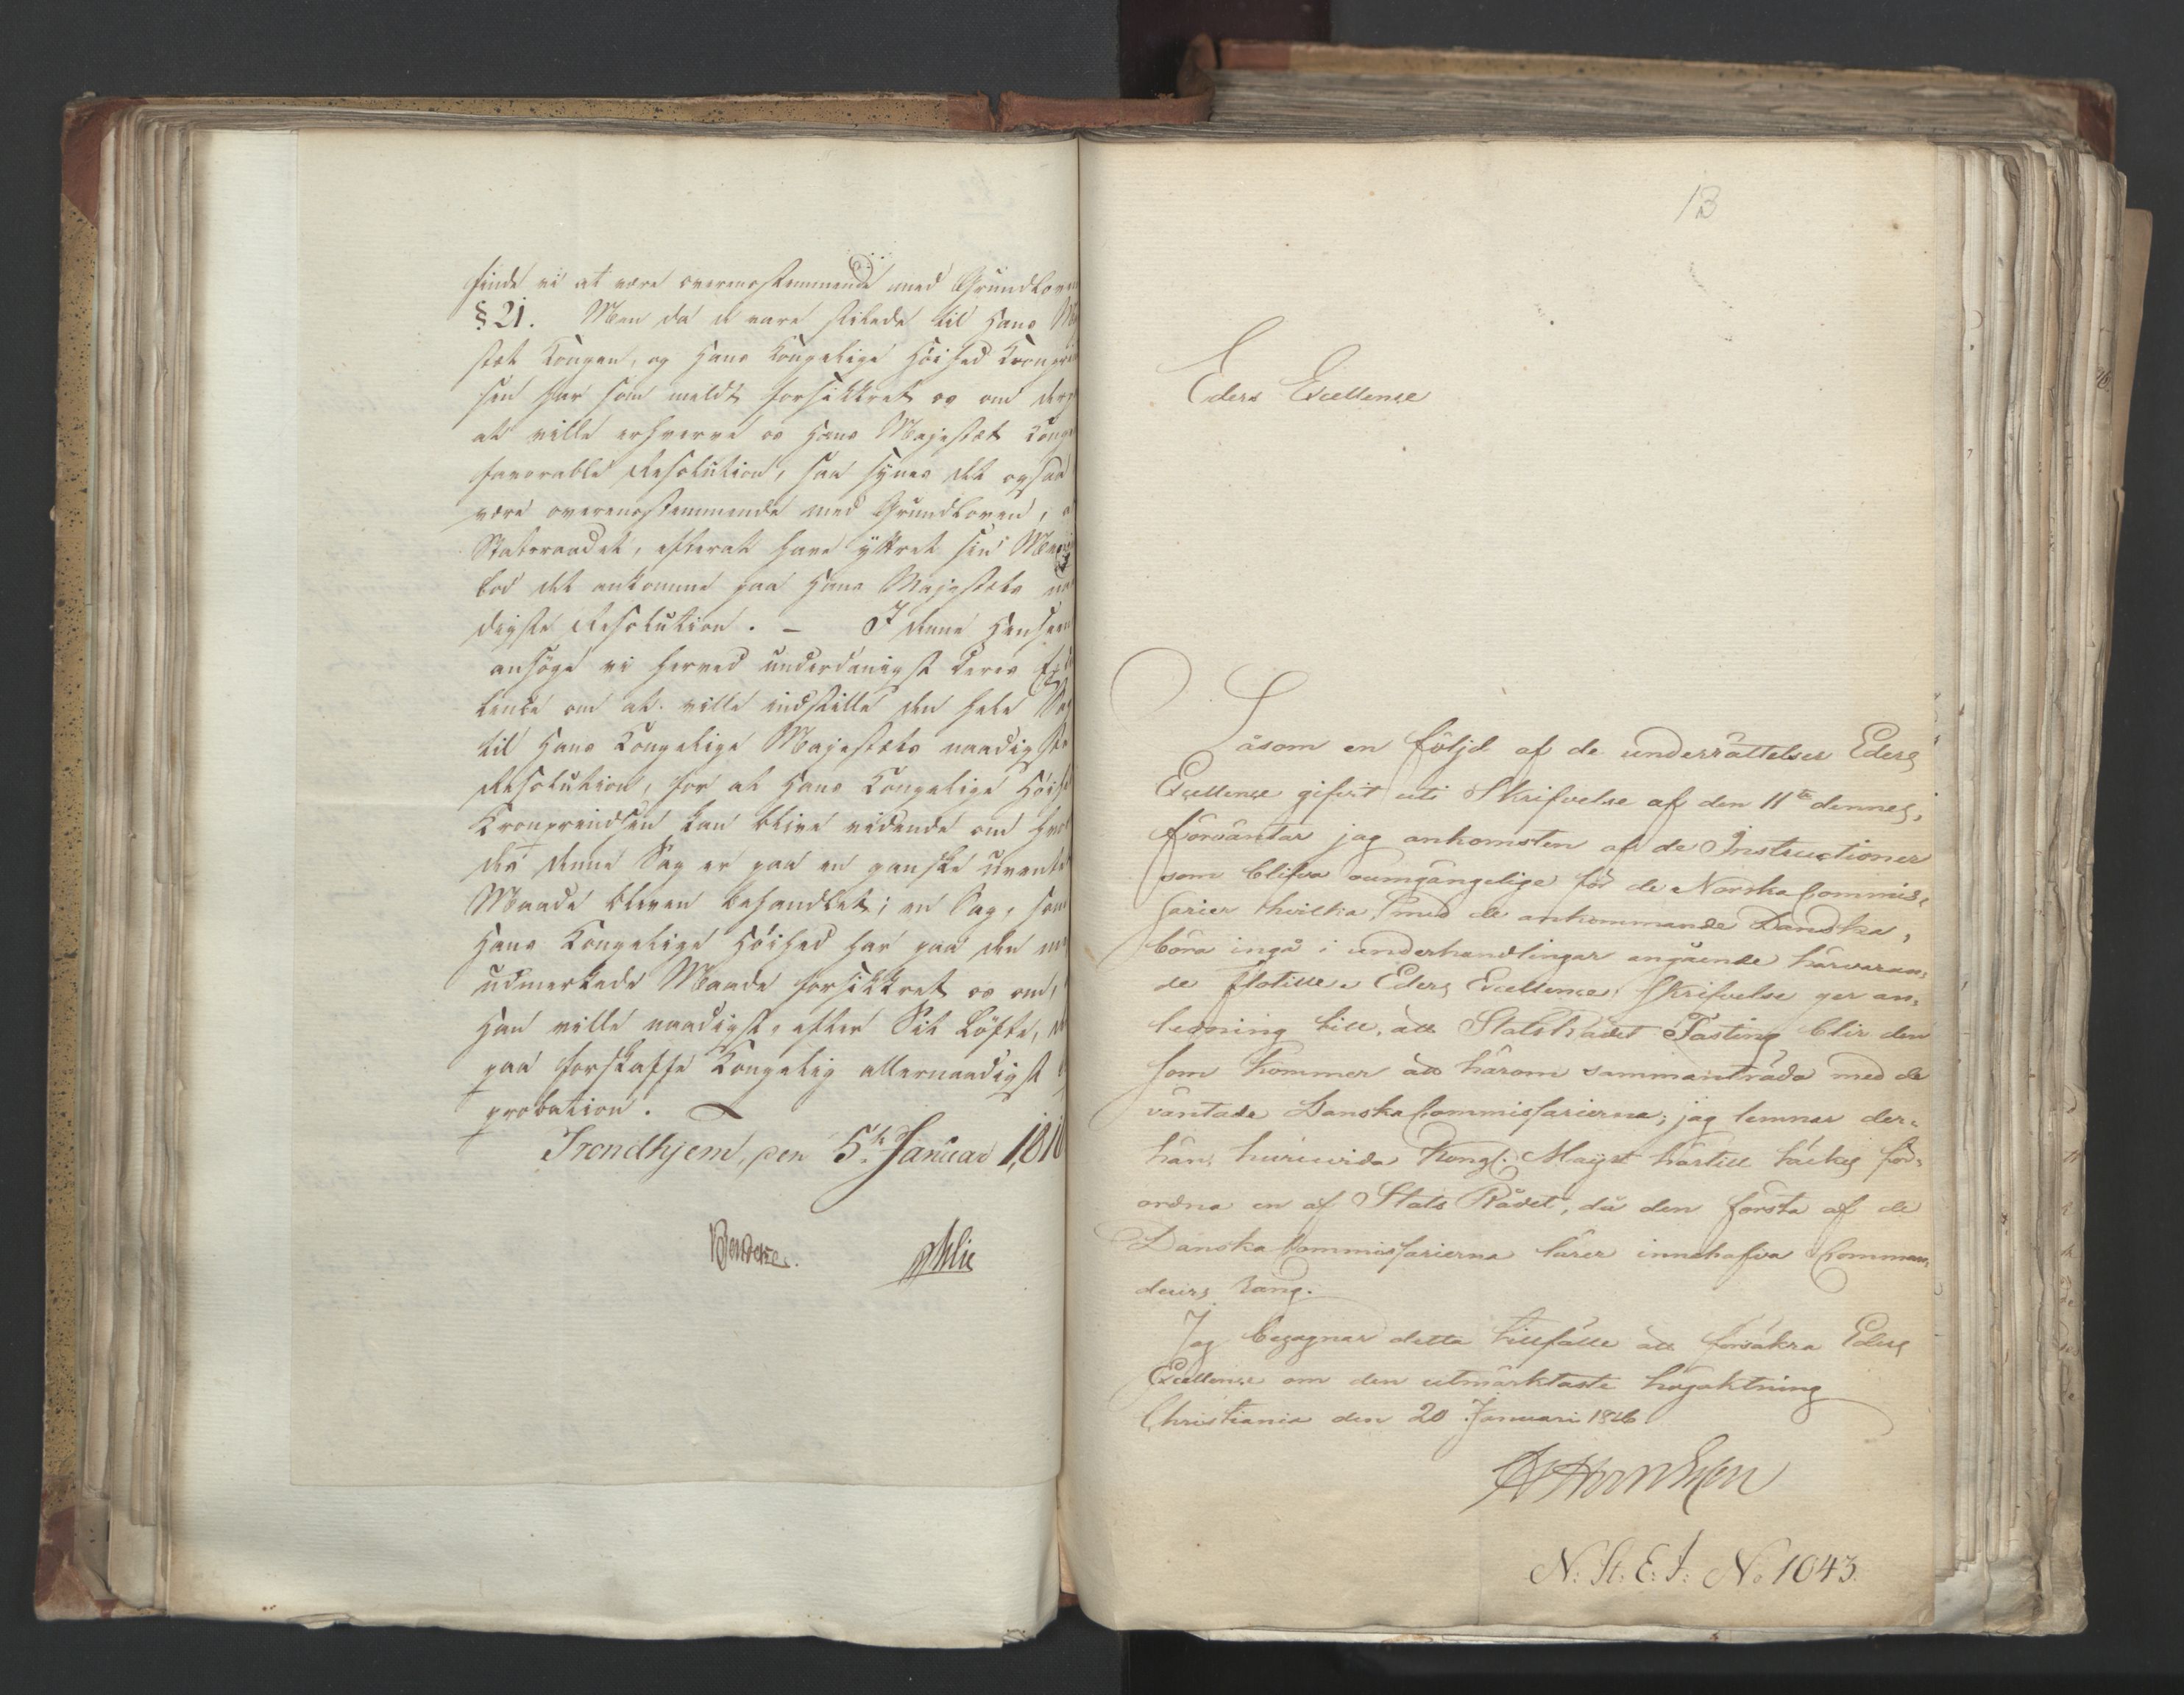 finde vi at være overensstemmende med Grundloven
§ 21. Men da de vare stilede til Hans Ma
stæt Kongen, og Hans Kongelige Høihed Kronprin
sen har som meldt forsikkret os om derp
at ville erhverve os Hans Majestæt Konge
favorable Resolution, saa synes det ogsaa
være overensstemmende med Grundloven, a
Statsraadet, efterat have yttret sin Meni
lod det ankomme paa Hans Majestæts naa
digste Resolution. – I denne Hensee
ansøge vi herved underdanigst Deres Exel
lence om at ville indstille den hele Sag
til Hans Kongelige Majestæts naadigste
Resolution, for at Hans Kongelige Høih
Kronprindsen kan blive vidende om hvor
der denne Sag er paa en ganske uvente
Maade bleven behandlet; en Sag, som
Hans Kongelige Høihed har paa den m
udmerkede Maade forsikkret os om,
Han ville naadigst, efter Sit Løfte,
paa forskaffe Kongelig allernaadigst
probation.
Trondhjem, den 5te Januar 1816
13
Eders Excellence
Såsom en följd af de underrättelser Eders
Excellence gifvit uti Skrifvelse af den 11te dennes,
förväntar jag ankomsten af de Instructioner
som blifva oumgängelige för de Norska Commis,
sarier hvilka, med de ankommande Danska,
böra ingå i underhandlingar angående härvaran,
de flotille. Eders Excellence, Skrifvelse ger an,
ledning till, att StatsRådet Fasting blir den
som kommer att härom sammanträda med de
väntade Danska Commissarierna; jag lemnar der,
hän, huruvida Kongl. Majst härtill täckes för,
ordna en af Stats Rådet, då den första af de
Danska Commissarierna lärer innehafva Comman,
deurs rang.
Jag begagnar detta tillfälle att försäkra Eders
Excellence om den utmärktaste högaktning
Christiania den 20 Januari 1816
N: St: E: J: No 1043.